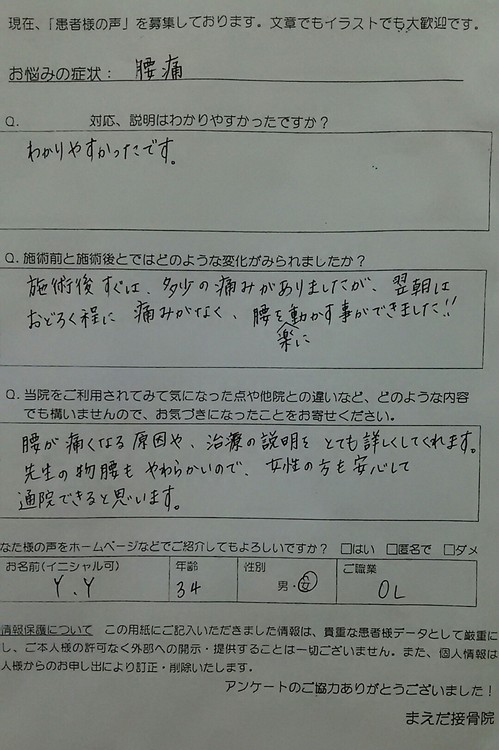 現在、「患者様の声」を募集しております。文章でもイラストでも大歓迎です。
お悩みの症状： 腰痛
Q. 対応、説明はわかりやすかったですか？
わかりやすかったです。
Q. 施術前と施術後とではどのような変化がみられましたか？
施術後すぐは、多少の痛みがありましたが、翌朝は
おどろく程に 痛みがなく、腰を動かす事ができました!!
楽に
Q. 当院をご利用されてみて気になった点や他院との違いなど、どのような内容
でも構いませんので、お気づきになったことをお寄せください。
腰が痛くなる原因や、治療の説明を とても詳しくしてくれます。
先生の物腰も やわらかいので、女性の方も安心して
通院できると思います。
なた様の声をホームページなどでご紹介してもよろしいですか？ □はい □匿名で □ダメ
お名前(イニシャル可) 年齢 性別 ご職業
Y.Y 34 男・女 OL
情報保護について この用紙にご記入いただきました情報は、貴重な患者様データとして厳重に
し、ご本人様の許可なく外部への開示・提供することは一切ございません。また、個人情報は
人様からのお申し出により訂正・削除いたします。
アンケートのご協力ありがとうございました！
まえだ接骨院